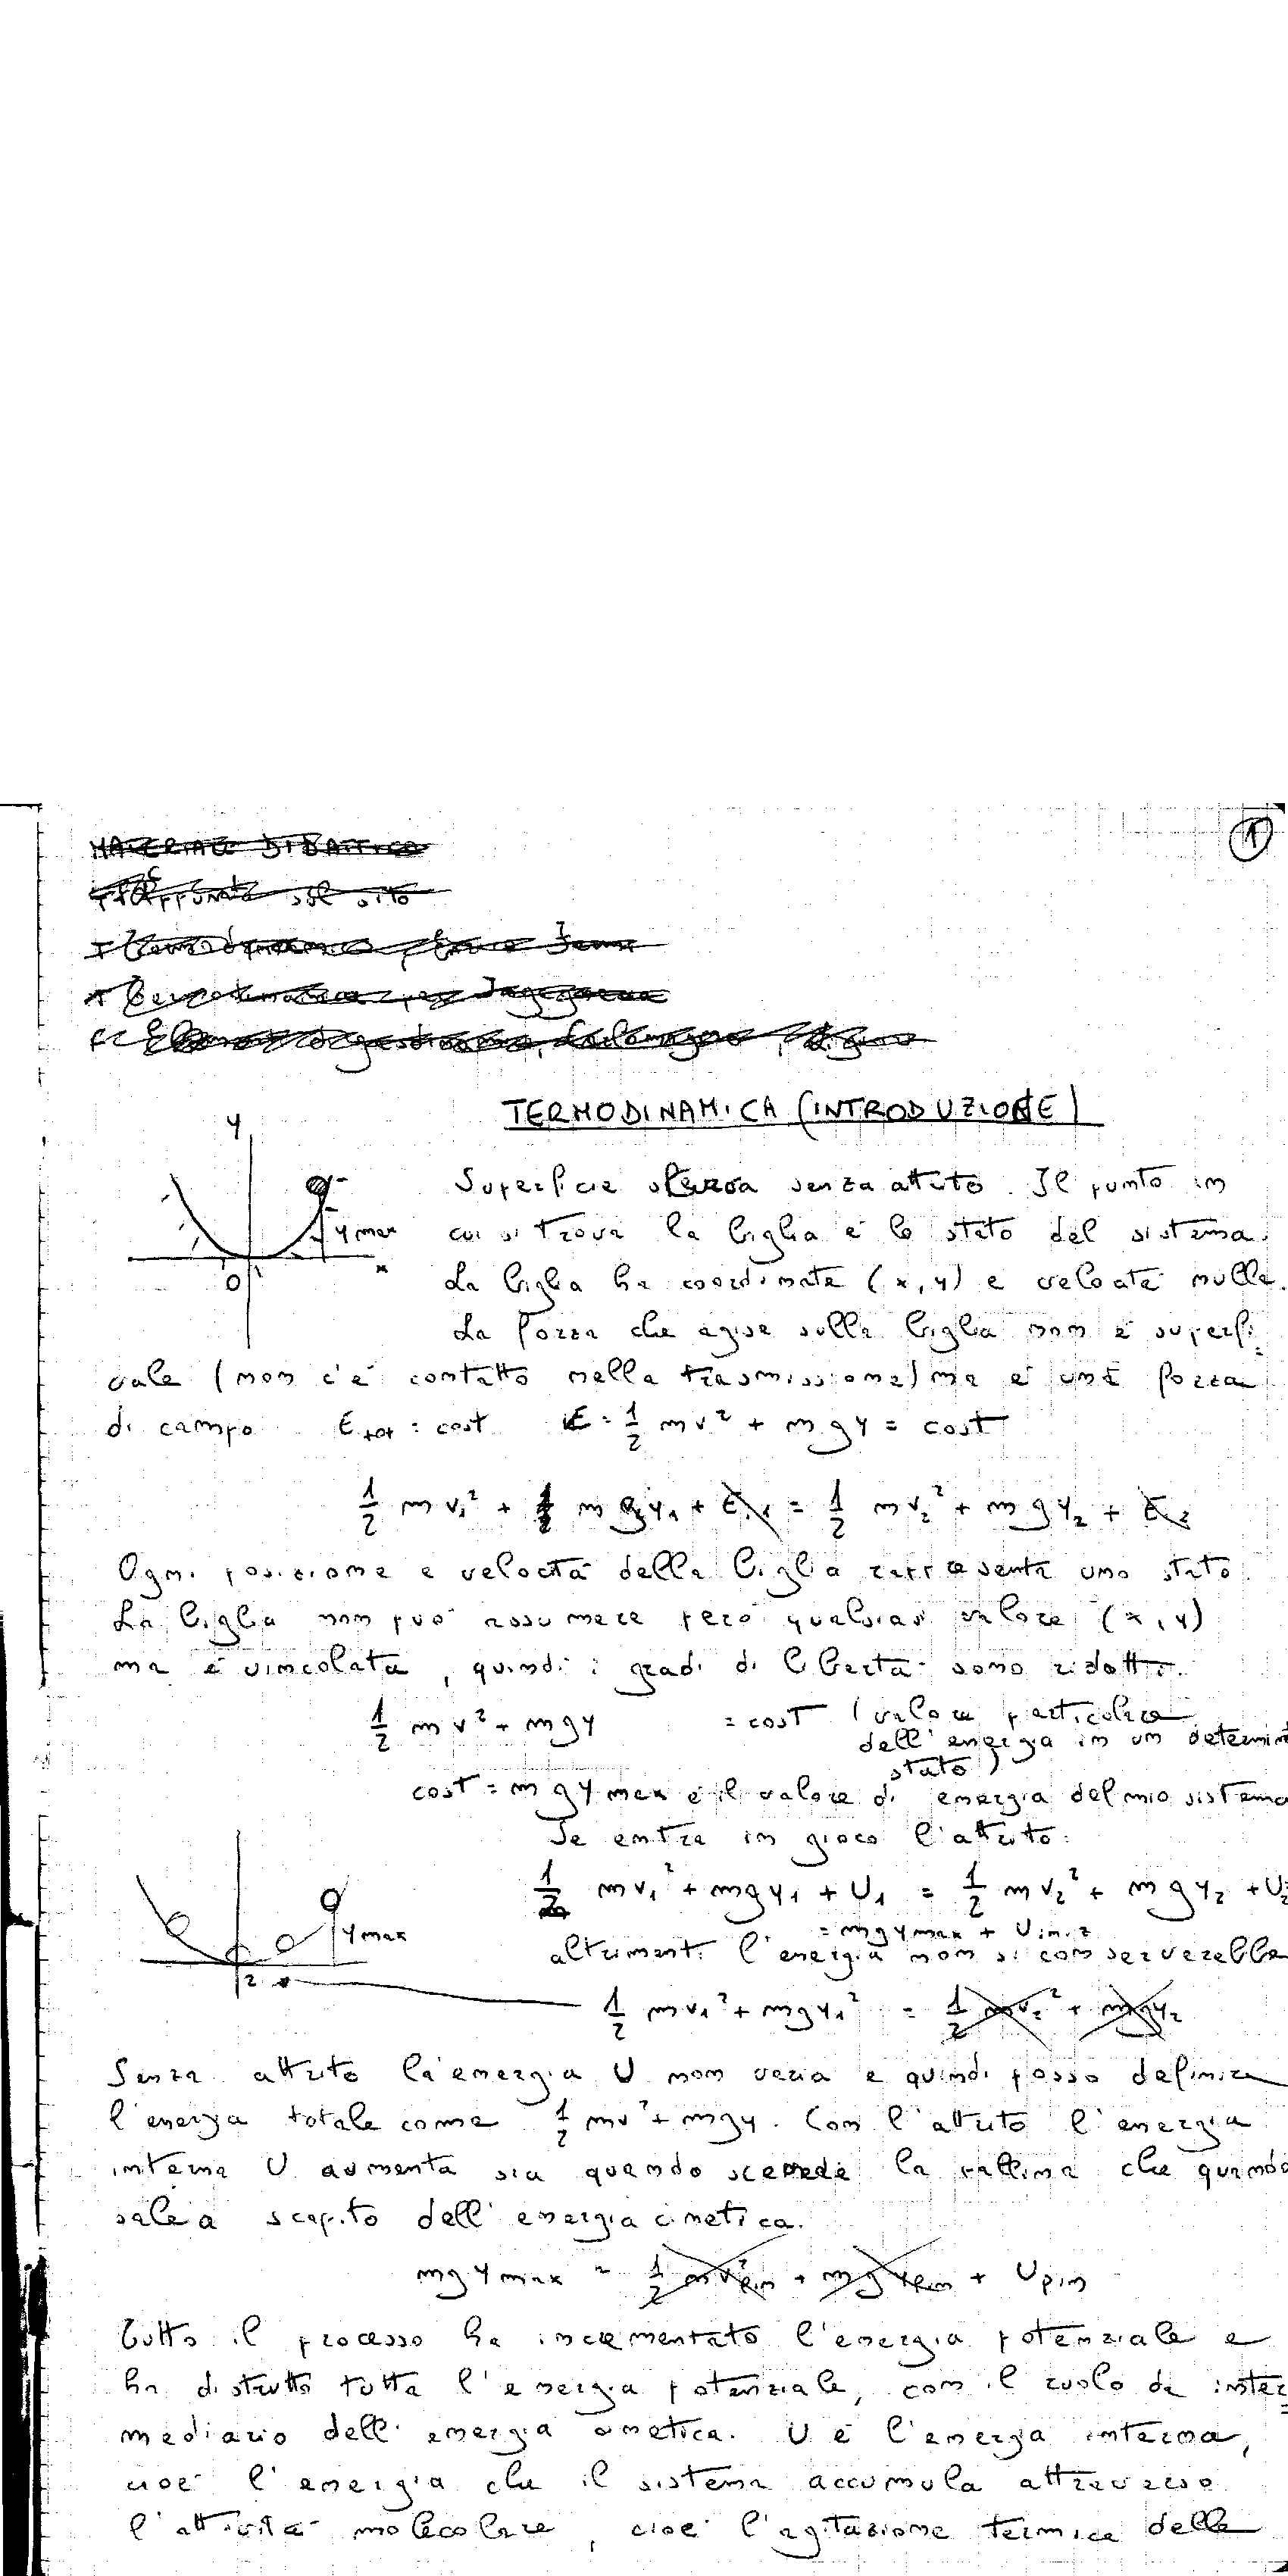 1
MATERIALE DIDATTICO
Appunti sul sito
TERMODINAMICA (INTRODUZIONE)
y
Superficie senza attrito. Il punto in
ymax
cui si trova la biglia è lo stato del sistema.
x
O
La biglia ha coordinate (x, y) e velocità nulla.
La forza che agisce sulla biglia non è superfi
ciale (non c'è contatto nella trasmissione) ma è una forza
di campo E_tot = cost E = 1/2 mv² + mgy = cost
1/2 mv₁² + mgy₁ + E_i1 = 1/2 mv₂² + mgy₂ + E_i2
Ogni posizione e velocità della biglia rappresenta uno stato.
La biglia non può assumere però qualsiasi valore (x, y)
ma è vincolata, quindi i gradi di libertà sono ridotti.
1/2 mv² + mgy = cost (valore particolare
dell'energia in un determin
stato)
cost = mgymax è il valore di energia del mio sistema
Se entra in gioco l'attrito:
1/2 mv₁² + mgy₁ + U₁ = 1/2 mv₂² + mgy₂ + U₂
= mgymax + Uiniz
ymax
altrimenti l'energia non si conserverebbe
2
1/2 mv₁² + mgy₁² = 1/2 mv₂² + mgy₂
Senza attrito l'energia U non varia e quindi posso definire
l'energia totale come 1/2 mv² + mgy. Con l'attrito l'energia
interna U aumenta sia quando scende la pallina che quando
sale a scapito dell'energia cinetica.
mgymax = 1/2 mv²fin + mgyfin + Ufin
Tutto il processo ha incrementato l'energia potenziale e
ha distrutto tutta l'energia potenziale, con il ruolo di inter
mediario dell'energia cinetica. U è l'energia interna,
cioè l'energia che il sistema accumula attraverso
l'attività molecolare, cioè l'agitazione termica delle